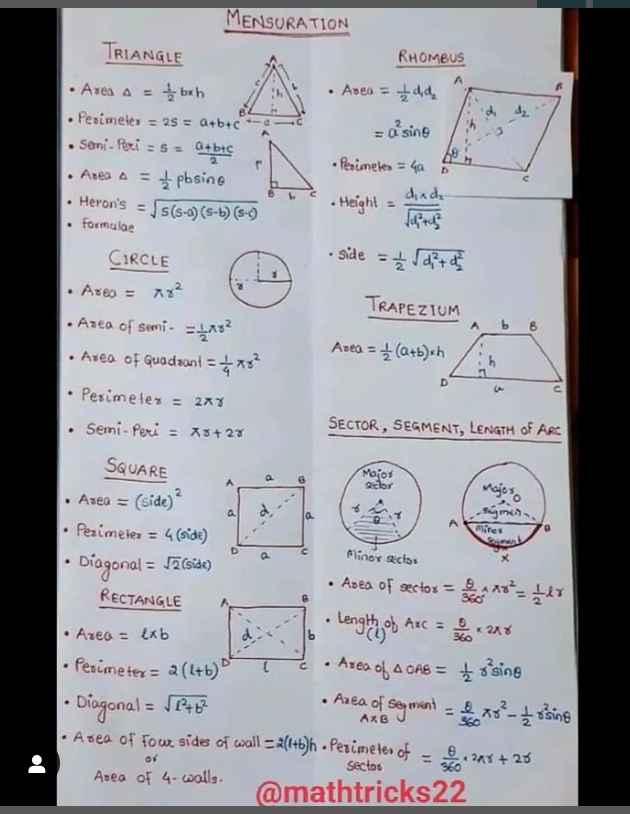 MENSURATION
TRIANGLE
• Area Δ = 1/2 b×h
• Perimeter = 2S = a+b+c
• Semi-Peri = S = a+b+c/2
• Area Δ = 1/2 pbsinθ
• Heron's = √S(s-a)(s-b)(s-c)
• formulae
A
c
h
B
a
C
A
P
B
b
C
CIRCLE
• Area = πr²
• Area of semi- = 1/2 πr²
• Area of Quadrant = 1/4 πr²
• Perimeter = 2πr
• Semi-Peri = πr+2r
r
r
SQUARE
• Area = (side)²
• Perimeter = 4(side)
• Diagonal = √2(side)
A
a
B
a
d
a
D
a
C
RECTANGLE
• Area = l×b
• Perimeter = 2(l+b)
• Diagonal = √l²+b²
• Area of Four sides of wall = 2(l+b)h
or
Area of 4-walls.
A
B
d
b
D
l
C
RHOMBUS
• Area = 1/2 d₁d₂
= a²sinθ
• Perimeter = 4a
• Height = d₁×d₂/√d₁²+d₂²
• side = 1/2 √d₁²+d₂²
A
B
d₁
d₂
h
θ
D
C
TRAPEZIUM
Area = 1/2 (a+b)×h
A
b
B
h
D
a
C
SECTOR, SEGMENT, LENGTH of ARC
Major
sector
r
r
θ
Minor sector
Major
O
segmen
A
B
Minor
segment
X
• Area of sector = θ/360° × πr² = 1/2 lr
• Length of Arc = θ/360 × 2πr
(l)
• Area of Δ OAB = 1/2 r²sinθ
• Area of Segment = θ/360 πr² - 1/2 r²sinθ
A×B
• Perimeter of = θ/360 × 2πr + 2r
sector
@mathtricks22